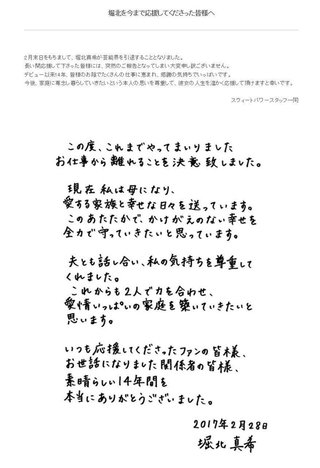 堀北を今まで応援してくださった皆様へ
2月末日をもちまして、堀北真希が芸能界を引退することとなりました。
長い間応援して下さった皆様には、突然のご報告となってしまい大変申し訳ございません。
デビュー以来14年、皆様のお陰でたくさんの仕事に恵まれ、感謝の気持ちでいっぱいです。
今後、家庭に専念し暮らしていきたいという本人の思いを尊重して、彼女の人生を温かく応援して頂けますと幸いです。
スウィートパワースタッフ一同
この度、これまでやってまいりました
お仕事から離れることを決意致しました。
現在 私は母になり、
愛する家族と幸せな日々を送っています。
このあたたかで、かけがえのない幸せを
全力で守っていきたいと思っています。
夫とも話し合い、私の気持ちを尊重して
くれました。
これからも2人で力を合わせ、
愛情いっぱいの家庭を築いていきたいと
思います。
いつも応援してくださったファンの皆様、
お世話になりました関係者の皆様、
素晴らしい14年間を
本当にありがとうございました。
2017年2月28日
堀北 真希